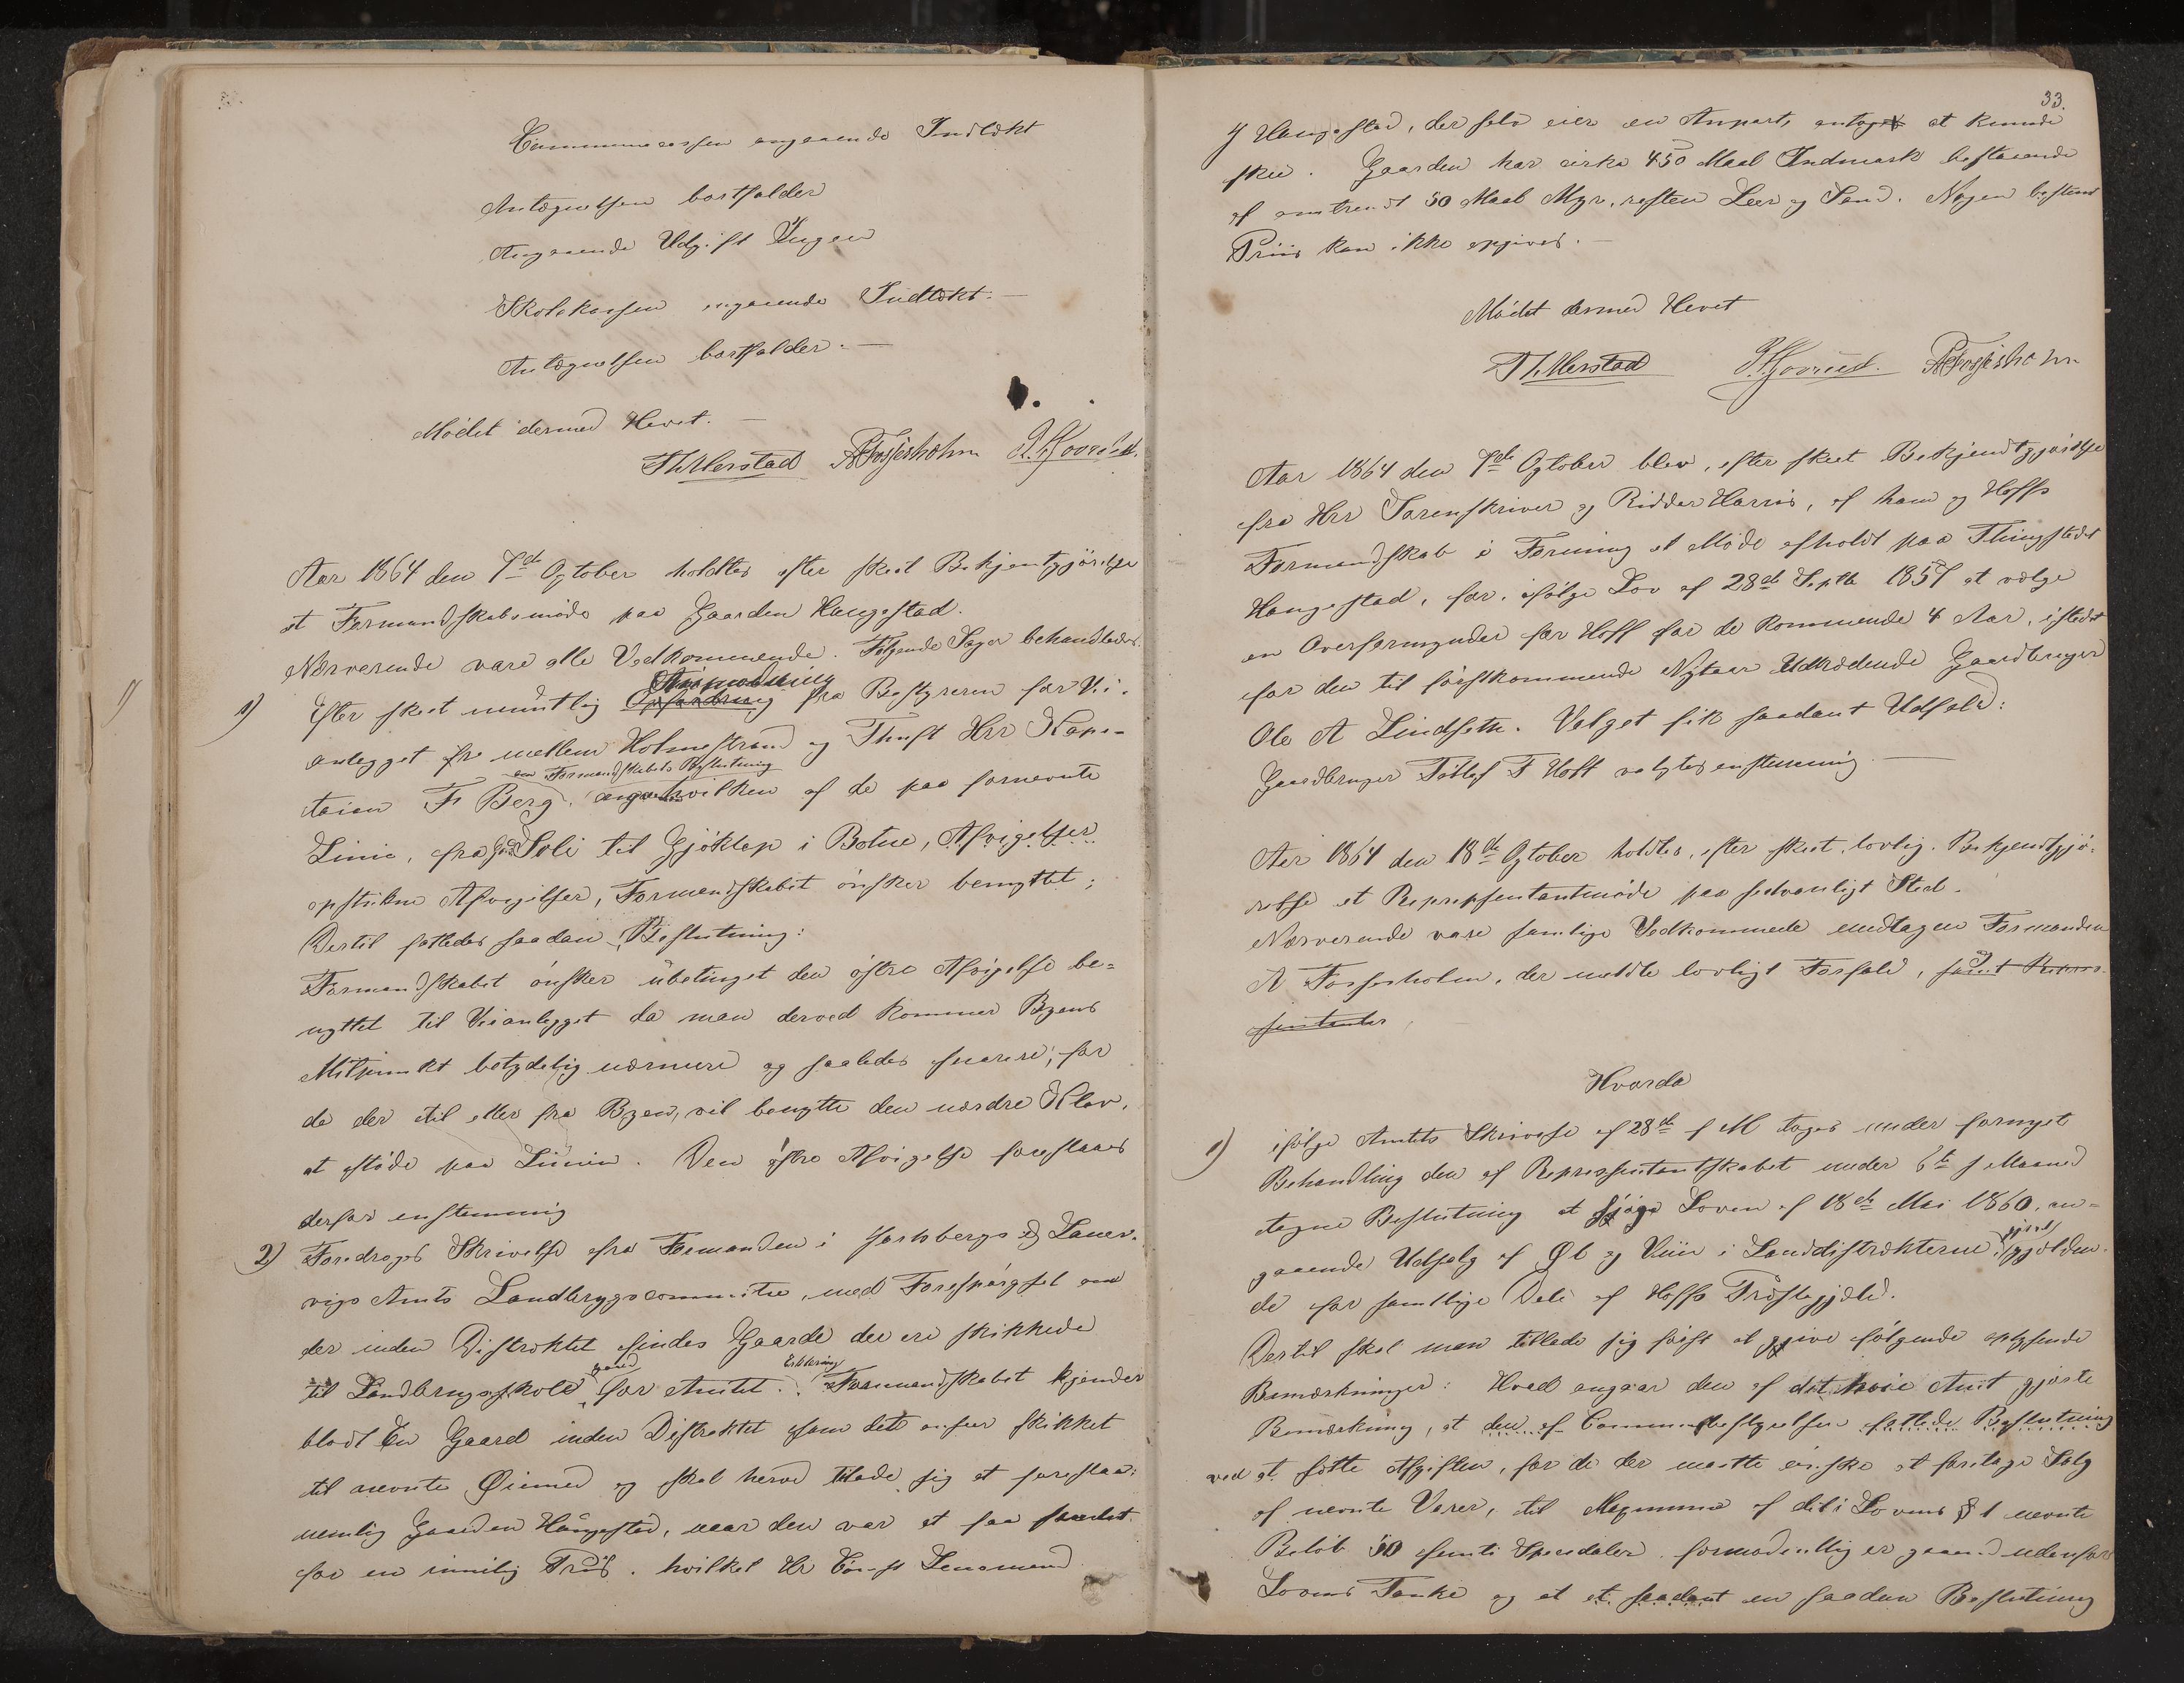 Communecassen angaaende Indtækt
Antegnelsen bortfalder
Angaaende Udgift Ingen
Skolekassen angaaende Indtækt. —
Antegnelsen bortfalder. —
Mødet dermed Hevet. —
Th Ulerstad A Fossesholm P. Hjorrud.
Aar 1864 den 7de Ogtober holdtes efter skeet Bekjentgjørelse
et Formandskabsmøde paa Gaarden Haugestad.
Nærverende vare alle Vedkommende. Følgende Sager behandledes.
1) Efter skeet mundtlig Opfordring Anmodning fra Bestyreren for Vei-
anlegget fra mellem Holmestrand og Thuft Hrr Kapi-
taien Fr Berg, om Formandskabets Beslutning angaaende hvilken af de paa fornevnte
Linie, fra Gd Soli til Gjøklep i Botne, Afvigelser
opstukne Afvigelser, Formandskabet ønsker benyttet;
Dertil fattedes saadan Beslutning:
Formandskabet ønsker ubetinget den østre Afvigelse be-
nyttet til Veianlegget da man derved kommer Byens
Mitpunkt betydelig nærmere og saaledes snarere, for
de der til eller fra Byen, vil benytte den nordre Klev,
at støde paa Linien. Den østre Afvigelse foreslaaes
derfor enstemmig
2) Foredroges Skrivelse fra Formanden i Jarlsbergs og Laur-
vigs Amts Landbrygscommitee, med Forespørgsel om
der inden Distrektet findes Gaarde der ere skikkede
til Landbrugsskole gaard for Amtet. Erklæring Formandskabet kjender
blodt En Gaard inden Distrektet som det anseer skikket
til nevnte Øiemed og skal herved tillade sig at foreslaa:
nemlig Gaarden Haugestad, naar den var at faa
for en rimelig Priis. hvilket Hr Lensmand
33.
J Haugestad, der selv eier en Anpart, antoges at kunde
skee. Gaarden har cirka 450 Maal Indmark bestaaende
af omtrendt 50 Maal Myr, resten Leer og Sand. Nogen bestemt
Priis kan ikke opgives. —
Mødet dermed Hevet
Th Ulerstad P. Hjorrud. A Fossesholm
Aar 1864 den 7de Ogtober blev, efter skeet Bekjendtgjørelse
fra Hrr Sorenskriver og Ridder Harris, af ham og Hoffs
Formandskab i Forening et Møde afholdt paa Thingstedet
Haugestad, for, ifølge Lov af 28de Septbr 1857 at vælge
en Overformynder for Hoff for de kommende 4 Aar, istedet
for den til førstkommende Nytaar Udtrædende Gaardbruger
Ole A Lindseth. Valget fik saadant Udfald:
Gaardbruger Tollef T Hoff valgtes enstemmig —
Aar 1864 den 18de Ogtober holdtes, efter skeet lovlig Bekjendtgjø-
relse et Repressentantmøde paa sedvanligt Sted.
Nærverende vare samtlige Vedkommende undtagen Formanden
A Fossesholm, der meldte lovligt Forfald, samt
Hvorda
1) ifølge Amtets Skrivelse af 28de f M toges under fornyet
Behandling den af Represfentantskabet under 6te f Maaned
tagne Beslutning at gjøre Loven af 18de Mai 1860, an-
gaaende Udsalg af Øl og Viin i Landdistrækterne gjeldende
de for samtlige Dele af Hoffs Præstegjæld.
Dertil skal man tillade sig først at give følgende oplysende
Bemærkninger: Hvad angaar den af det høie Amt gjorte
Bemærkning, at den af Communebestyrelsen fattede Beslutning
ved at sætte Afgiften, for de der maatte ønske at foretage Salg
af nevnte Varer, til Maximum af det i Lovens § 1 nevnte
Beløb 50 femti Speciedaler, formodentlig er gaaed udenfor
Lovens Tanke og at et saadant en saadan Beslutning